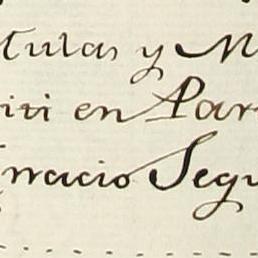 tulas y M
iti en Par
nacio Segu